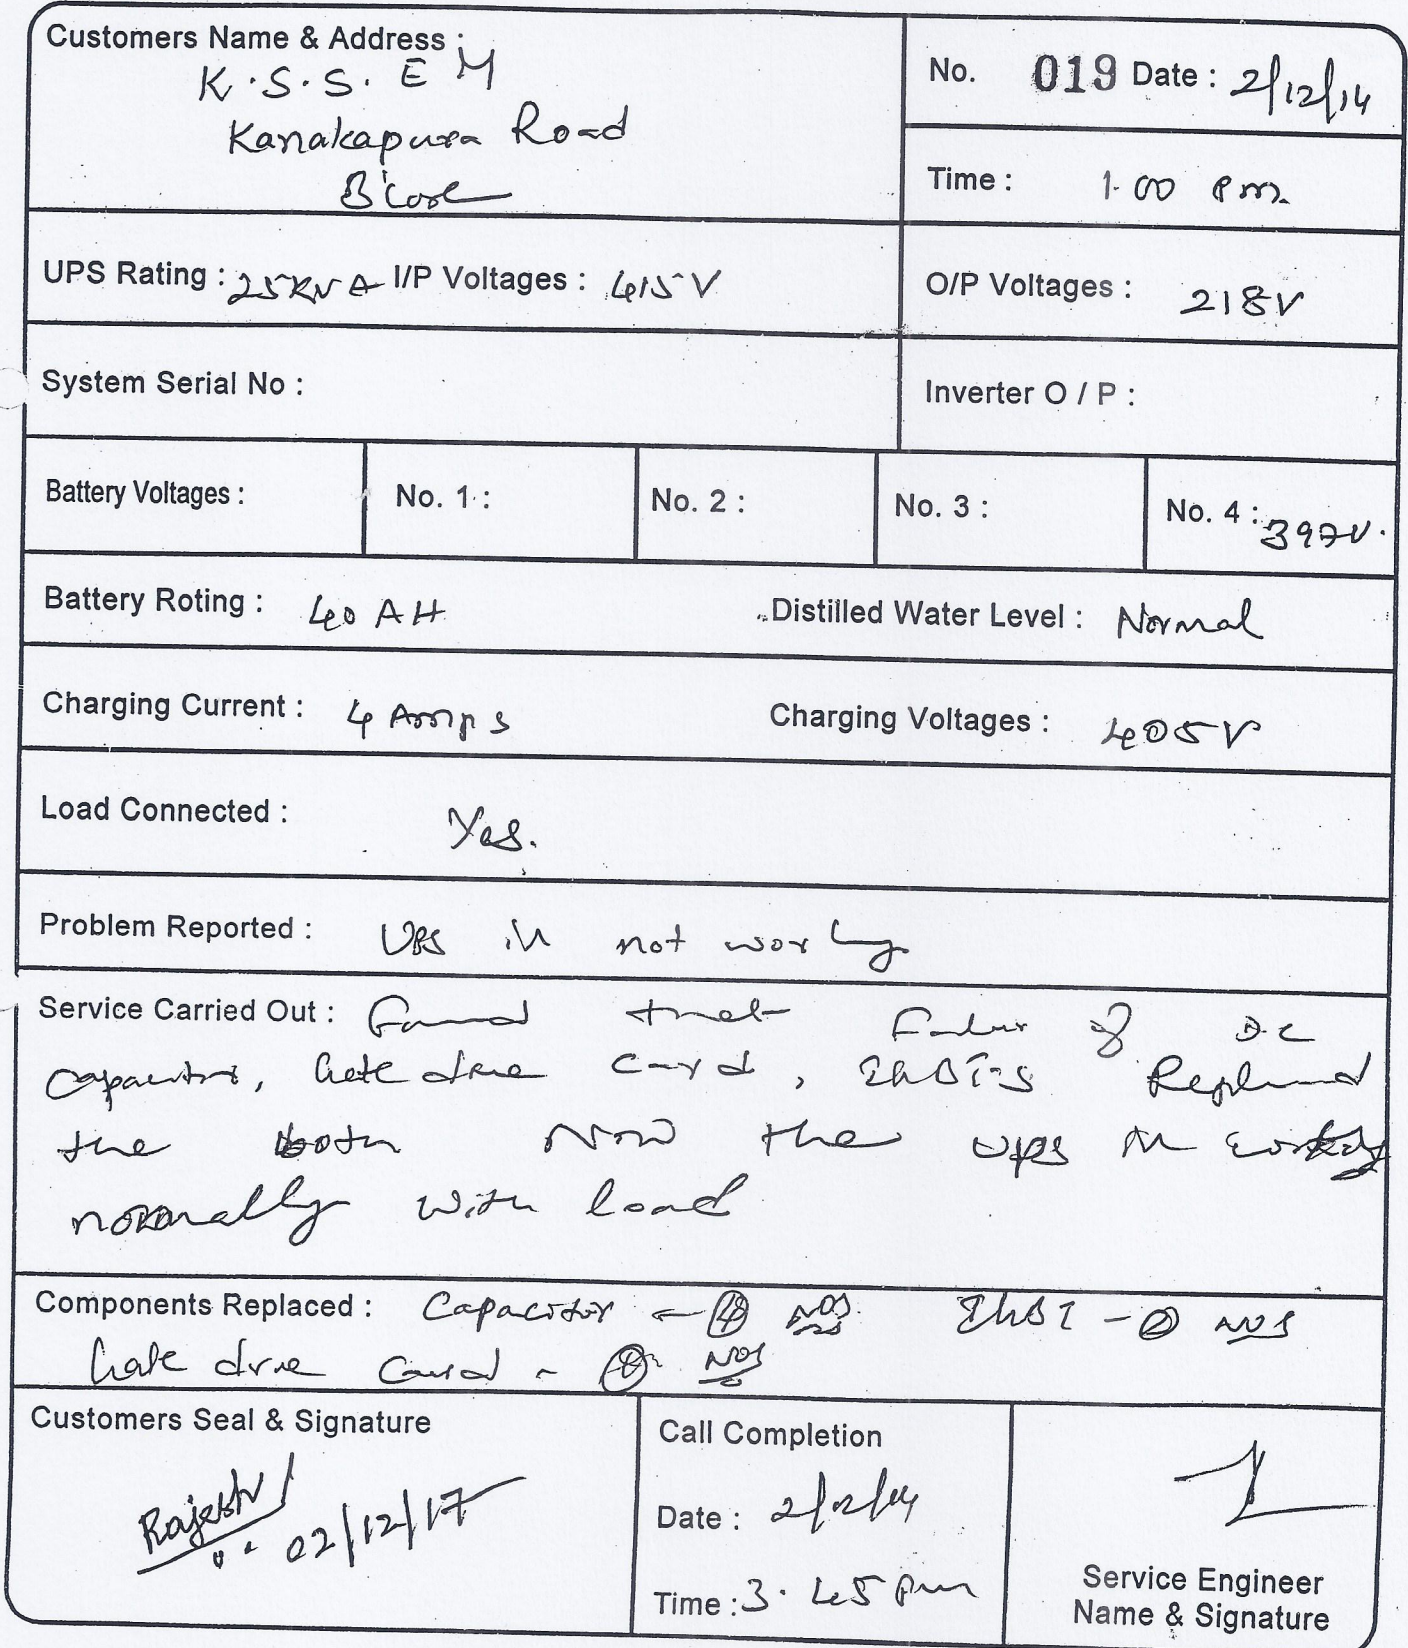 Customers Name & Address :
K.S.S.E M
Kanakapura Road
B'lore
No. 019 Date : 2/12/14
Time : 1.00 pm.
UPS Rating : 25KVA I/P Voltages : 415V
O/P Voltages : 218V
System Serial No :
Inverter O / P :
Battery Voltages : No. 1 : No. 2 : No. 3 : No. 4 : 397V.
Battery Roting : 40 AH Distilled Water Level : Normal
Charging Current : 4 Amps Charging Voltages : 405V
Load Connected : Yes.
Problem Reported : UPS is not working
Service Carried Out : Found that Failur of DC
capacitor, Gate drive card, IGBT-s Replaced
the both Now the ups is working
normally with load
Components Replaced : Capacitor - 4 NOS IGBT - 2 NOS
Gate drive card - NOS
Customers Seal & Signature
Rajesh
02/12/17
Call Completion
Date : 2/12/14
Time : 3.45 pm
Service Engineer
Name & Signature